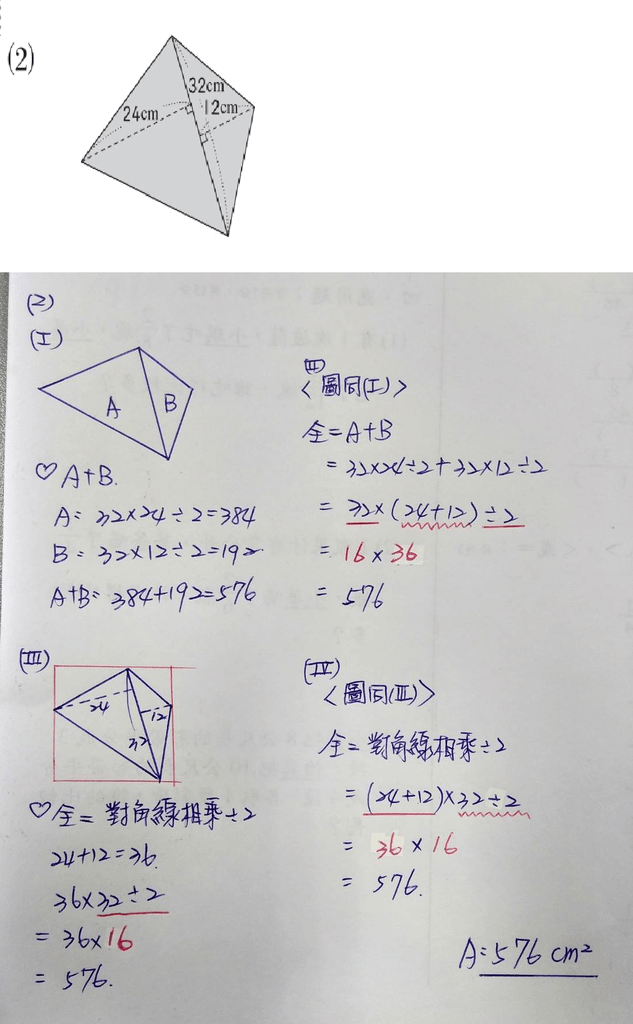 (2)
32cm
24cm
12cm
(2)
(I)
A
B
♡ A+B.
A: 32×24÷2=384
B: 32×12÷2=192
A+B: 384+192=576
(II)
〈圖同(I)〉
全=A+B
=32×24÷2+32×12÷2
= 32×(24+12)÷2
= 16×36
= 576
(III)
24
12
32
♡ 全= 對角線相乘÷2
24+12=36
36×32÷2
= 36×16
= 576.
(IV)
〈圖同(III)〉
全=對角線相乘÷2
= (24+12)×32÷2
= 36×16
= 576.
A:576 cm²